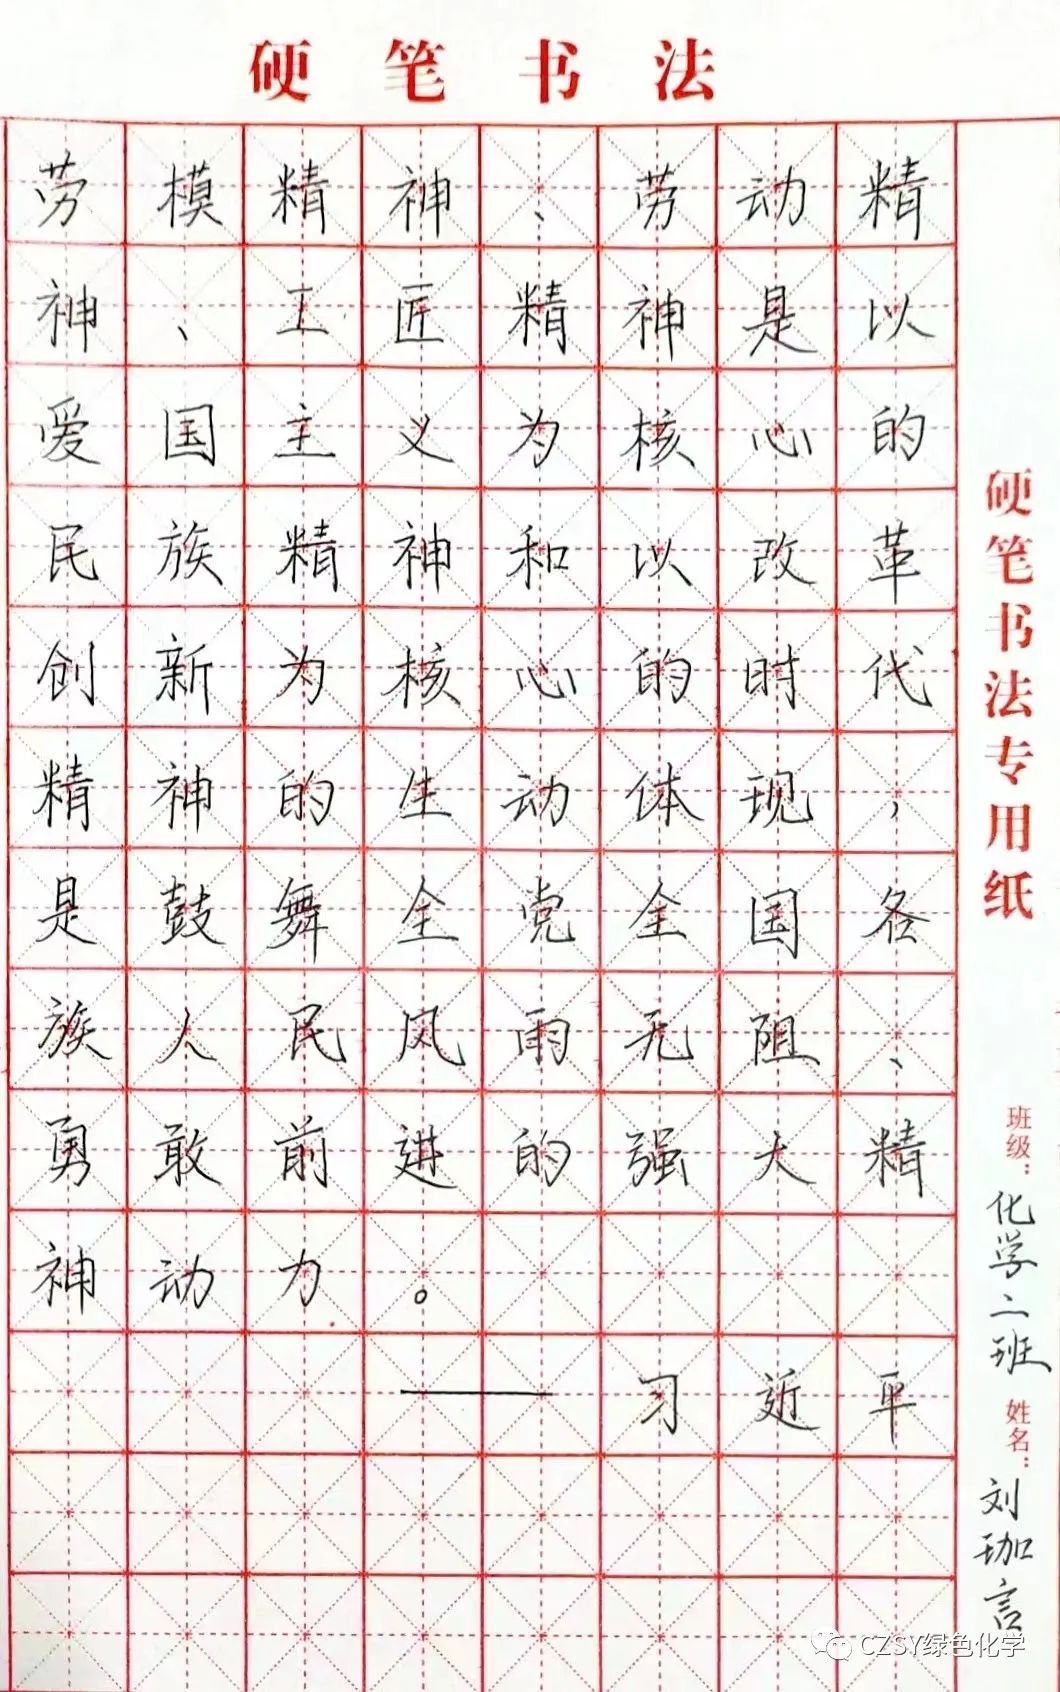 硬笔书法
劳模精神、劳动精
神、工匠精神是以
爱国主义为核心的
民族精神和以改革
创新为核心的时代
精神的生动体现，
是鼓舞全党全国各
族人民风雨无阻、
勇敢前进的强大精
神动力。
——习近平
硬笔书法专用纸
班级：化学二班
姓名：刘珈言
CZSY绿色化学